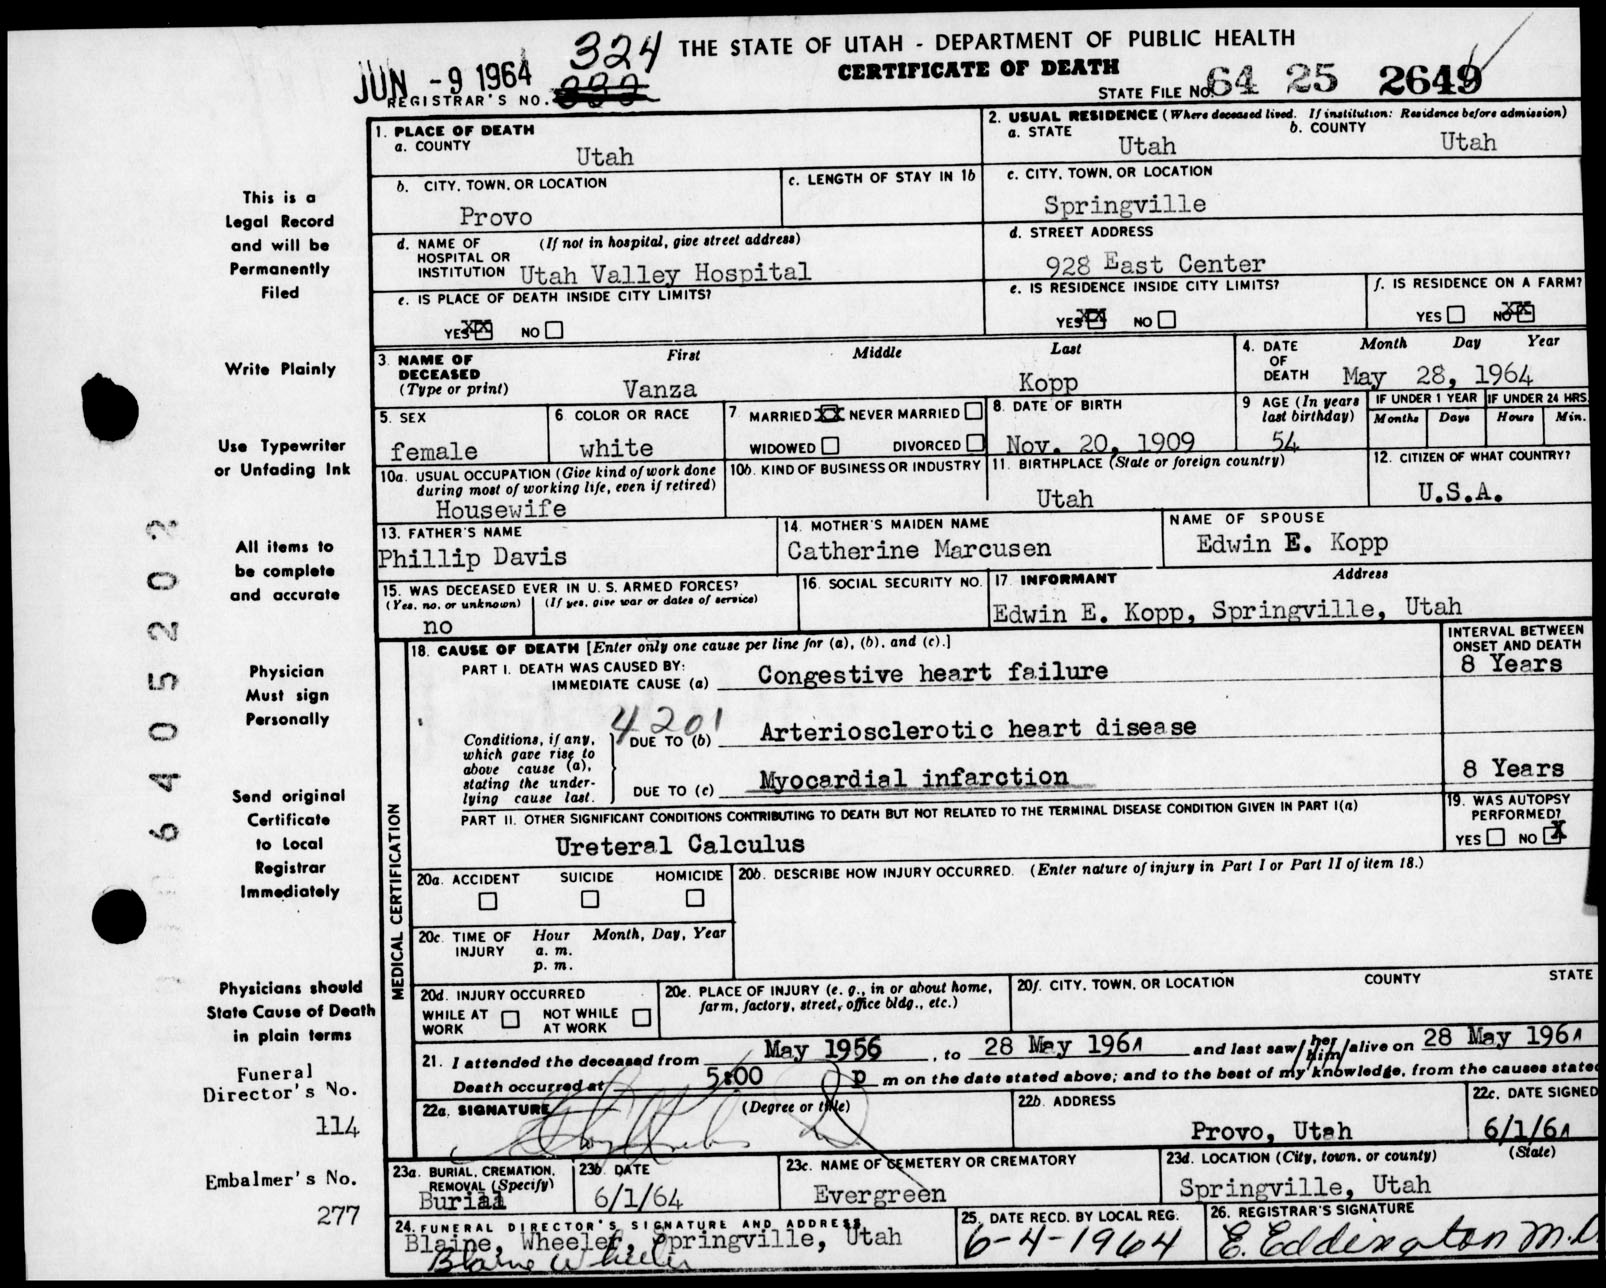 324 THE STATE OF UTAH - DEPARTMENT OF PUBLIC HEALTH
JUN -9 1964 CERTIFICATE OF DEATH
REGISTRAR'S NO. STATE FILE NO. 64 25 2649
1. PLACE OF DEATH
a. COUNTY
Utah
2. USUAL RESIDENCE (Where deceased lived. If institution: Residence before admission)
a. STATE b. COUNTY
Utah Utah
b. CITY, TOWN, OR LOCATION
Provo
c. LENGTH OF STAY IN 1b
c. CITY, TOWN, OR LOCATION
Springville
d. NAME OF (If not in hospital, give street address)
HOSPITAL OR
INSTITUTION Utah Valley Hospital
d. STREET ADDRESS
928 East Center
e. IS PLACE OF DEATH INSIDE CITY LIMITS?
YES XX NO
e. IS RESIDENCE INSIDE CITY LIMITS?
YES XX NO
f. IS RESIDENCE ON A FARM?
YES NO XX
3. NAME OF First Middle Last
DECEASED
(Type or print) Vanza Kopp
4. DATE Month Day Year
OF
DEATH May 28, 1964
5. SEX
female
6 COLOR OR RACE
white
7 MARRIED XX NEVER MARRIED
WIDOWED DIVORCED
8. DATE OF BIRTH
Nov. 20, 1909
9 AGE (In years
last birthday)
54
IF UNDER 1 YEAR
Months Days
IF UNDER 24 HRS.
Hours Min.
10a. USUAL OCCUPATION (Give kind of work done
during most of working life, even if retired)
Housewife
10b. KIND OF BUSINESS OR INDUSTRY
11. BIRTHPLACE (State or foreign country)
Utah
12. CITIZEN OF WHAT COUNTRY?
U.S.A.
13. FATHER'S NAME
Phillip Davis
14. MOTHER'S MAIDEN NAME
Catherine Marcusen
NAME OF SPOUSE
Edwin E. Kopp
15. WAS DECEASED EVER IN U. S. ARMED FORCES?
(Yes, no, or unknown) (If yes, give war or dates of service)
no
16. SOCIAL SECURITY NO.
17. INFORMANT Address
Edwin E. Kopp, Springville, Utah
MEDICAL CERTIFICATION
18. CAUSE OF DEATH [Enter only one cause per line for (a), (b), and (c).]
INTERVAL BETWEEN
ONSET AND DEATH
PART I. DEATH WAS CAUSED BY:
IMMEDIATE CAUSE (a) Congestive heart failure 8 Years
4201
Conditions, if any,
which gave rise to
above cause (a),
stating the under-
lying cause last.
DUE TO (b) Arteriosclerotic heart disease
DUE TO (c) Myocardial infarction 8 Years
PART II. OTHER SIGNIFICANT CONDITIONS CONTRIBUTING TO DEATH BUT NOT RELATED TO THE TERMINAL DISEASE CONDITION GIVEN IN PART I(a)
Ureteral Calculus
19. WAS AUTOPSY
PERFORMED?
YES NO X
20a. ACCIDENT SUICIDE HOMICIDE
20b. DESCRIBE HOW INJURY OCCURRED. (Enter nature of injury in Part I or Part II of item 18.)
20c. TIME OF Hour Month, Day, Year
INJURY a. m.
p. m.
20d. INJURY OCCURRED
WHILE AT NOT WHILE
WORK AT WORK
20e. PLACE OF INJURY (e. g., in or about home,
farm, factory, street, office bldg., etc.)
20f. CITY, TOWN, OR LOCATION COUNTY STATE
21. I attended the deceased from May 1956, to 28 May 1964 and last saw her/him alive on 28 May 1964
Death occurred at 5:00 p m on the date stated above; and to the best of my knowledge, from the causes stated
22a. SIGNATURE (Degree or title)
22b. ADDRESS
Provo, Utah
22c. DATE SIGNED
6/1/64
23a. BURIAL, CREMATION,
REMOVAL (Specify)
Burial
23b. DATE
6/1/64
23c. NAME OF CEMETERY OR CREMATORY
Evergreen
23d. LOCATION (City, town, or county) (State)
Springville, Utah
24. FUNERAL DIRECTOR'S SIGNATURE AND ADDRESS
Blaine, Wheeler, Springville, Utah
Blaine Wheeler
25. DATE RECD. BY LOCAL REG.
6-4-1964
26. REGISTRAR'S SIGNATURE
E. Eddington M.D.
This is a
Legal Record
and will be
Permanently
Filed
Write Plainly
Use Typewriter
or Unfading Ink
All items to
be complete
and accurate
Physician
Must sign
Personally
Send original
Certificate
to Local
Registrar
Immediately
Physicians should
State Cause of Death
in plain terms
Funeral
Director's No.
114
Embalmer's No.
277
6405202